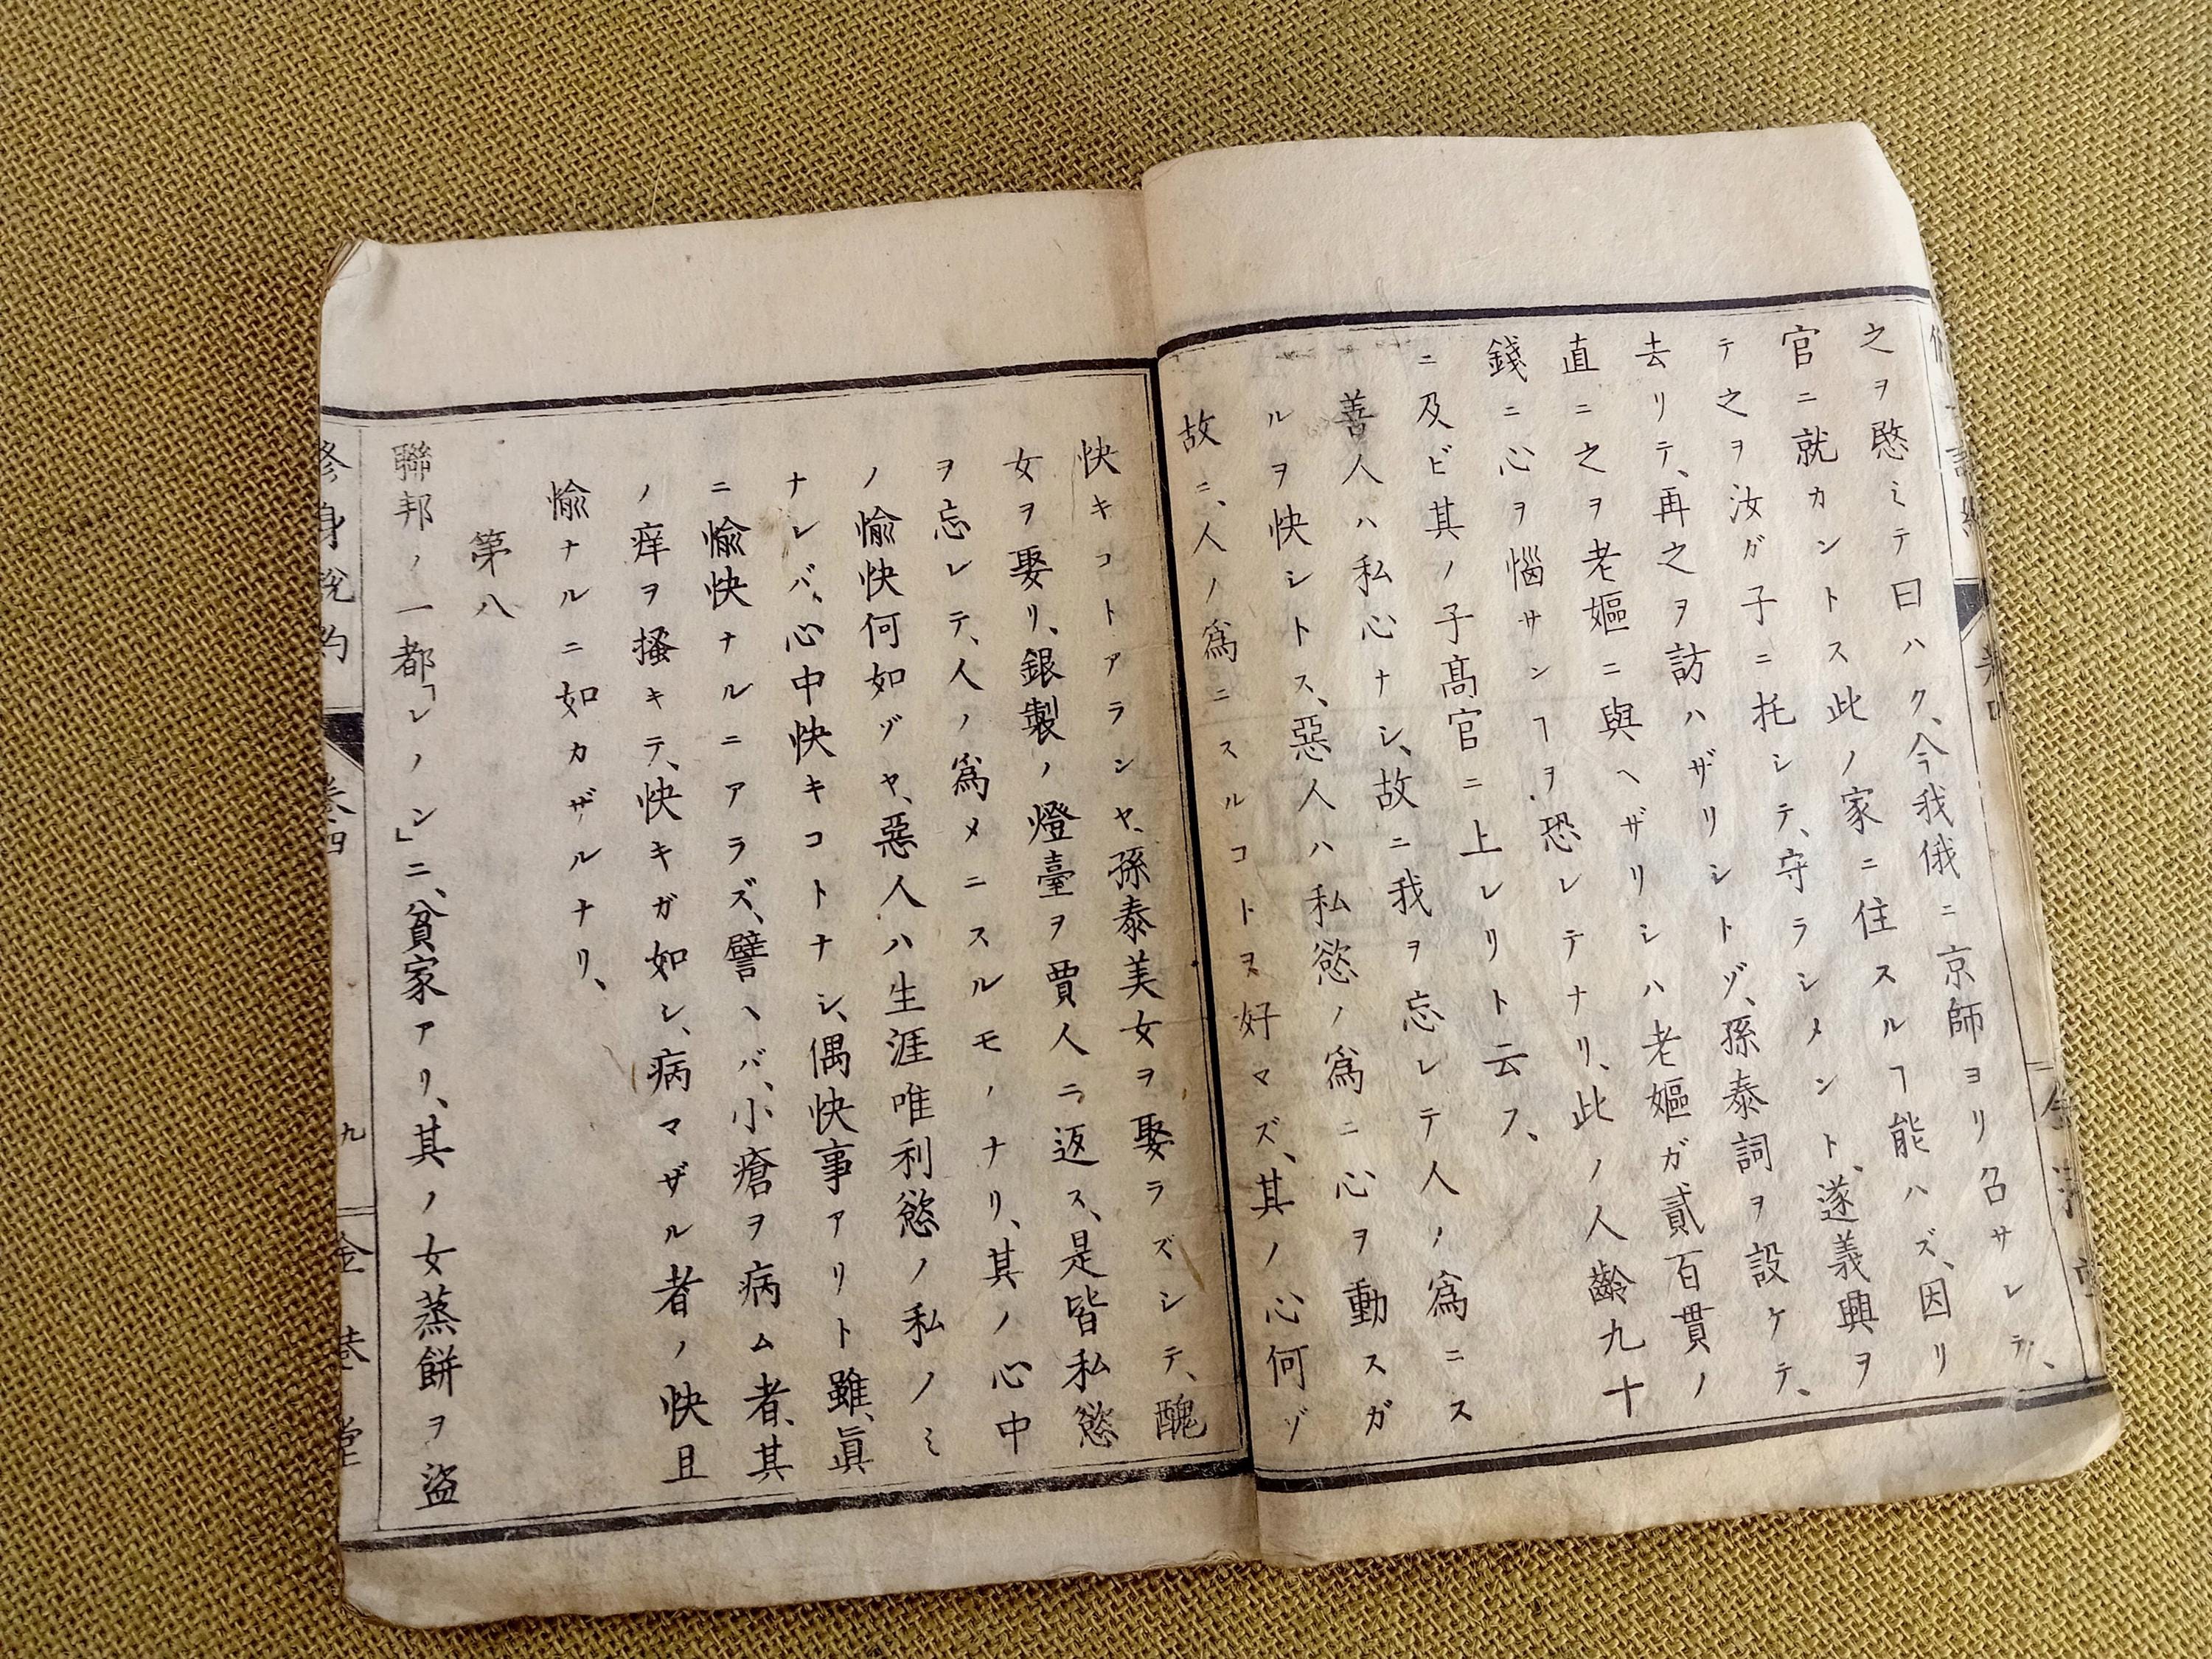 之ヲ愍ミテ曰ハク、今我俄ニ京師ヨリ召サレテ、
官ニ就カントス此ノ家ニ住スルヿ能ハズ、因リ
テ之ヲ汝ガ子ニ托シテ、守ラシメント、遂義興ヲ
去リテ、再之ヲ訪ハザリシトゾ、孫泰詞ヲ設ケテ、
直ニ之ヲ老嫗ニ與ヘザリシハ老嫗ガ貳百貫ノ
錢ニ心ヲ惱サンヿヲ恐レテナリ、此ノ人齡九十
ニ及ビ其ノ子髙官ニ上レリト云フ、
善人ハ私心ナシ、故ニ我ヲ忘レテ人ノ爲ニス
ルヲ快シトス、惡人ハ私慾ノ爲ニ心ヲ動スガ
故ニ、人ノ爲ニスルコトヲ好マズ、其ノ心何ゾ
快キコトアランヤ、孫泰美女ヲ娶ラズシテ、醜
女ヲ娶リ、銀製ノ燈臺ヲ賈人ニ返ス、是皆私慾
ヲ忘レテ、人ノ爲メニスルモノナリ、其ノ心中
ノ愉快何如ゾヤ、惡人ハ生涯唯利慾ノ私ノミ
ナレバ、心中快キコトナシ、偶快事アリト雖、眞
ニ愉快ナルニアラズ、譬ヘバ、小瘡ヲ病ム者、其
ノ痒ヲ搔キテ、快キガ如シ、病マザル者ノ快且
愉ナルニ如カザルナリ、
第八
聯邦ノ一都「レノン」ニ、貧家アリ、其ノ女蒸餅ヲ盜
修身說約 卷四 九 金港堂